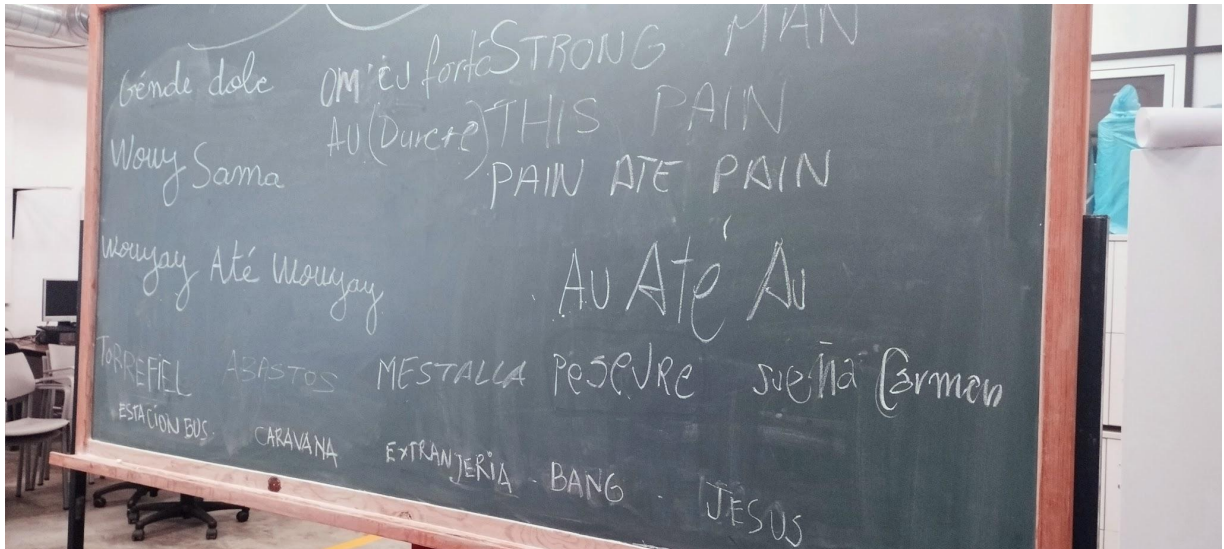 Génde dole OM'EU forté STRONG MAN
AU (Dureté) THIS PAIN
Wouy Sama PAIN ATE PAIN
Wouyay Até Wouyay Au Até Au
TORREFIEL ABASTOS MESTALLA PESEURE sueña Carmen
ESTACION BUS. CARAVANA EXTRANJERIA - BANG - JESUS